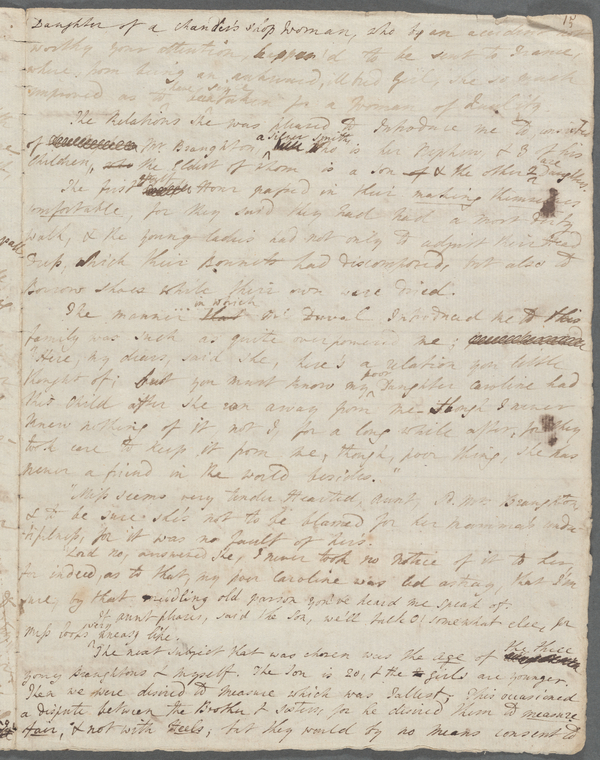 15
Daughter of a chandler's shop Woman, who by an accident not
worthy your attention, happen'd to be sent to France,
where, from being an awkward, ill bred Girl, she so much
improved as to be taken for a woman of Quality.
The Relations she was pleased to Introduce me to consisted
of Mr Braughton, a silver smith, who is her Nephew, & 3 of his
Children, the Eldest of whom is a Son & the other 2 are Daughters.
The first Half Hour passed in their making themselves
comfortable, for they said they had had a most dirty
walk, & the young ladies had not only to adjust their Head
Dress, which their Bonnets had discomposed, but also to
Borrow shoes while their own were Dried.
The manner in which Me Duval Introduced me to this
family was such as quite overpowered me;
"Here, my dears, said she, here's a relation you little
thought of; but you must know my poor Daughter Caroline had
this Child after she ran away from me though I never
knew nothing of it, not I, for a long while after, for they
took care to keep it from me, though, poor thing, she has
never a friend in the world besides."
"Miss seems very tender Hearted, Aunt, Sd. Mr. Braughton,
& to be sure she's not to be blamed for her mamma's undu-
tifulness, for it was no fault of hers.
Lord no, answered she, I never took no notice of it to her,
for indeed, as to that, my poor Caroline was led astray, that I'm
sure, by that meddling old parson you've heard me speak of.
If aunt pleases, said the Son, we'll talk o' somewhat else, for
Miss looks very uneasy like.
The next subject that was chosen was the age of the three
young Braughtons & myself. The Son is 20, & the Girls are younger.
Then we were desired to measure which was Tallest. This occasioned
a dispute between the Brother & Sisters, for he desired them to measure
fair, & not with Heels; but they would by no means consent to